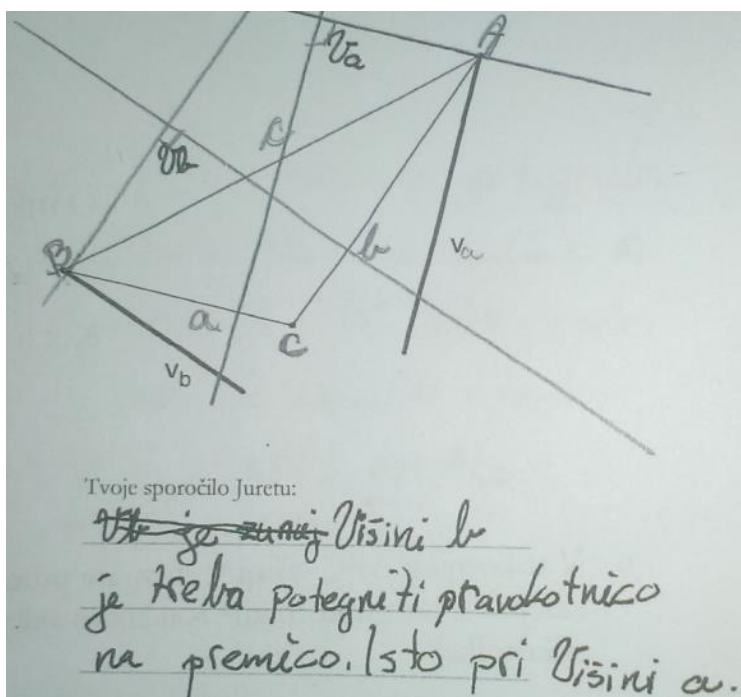 A
va
c
vb
B
b
va
a
C
vb
Tvoje sporočilo Juretu:
Vb je zunaj Višini b
je treba potegniti pravokotnico
na premico. Isto pri Višini a.